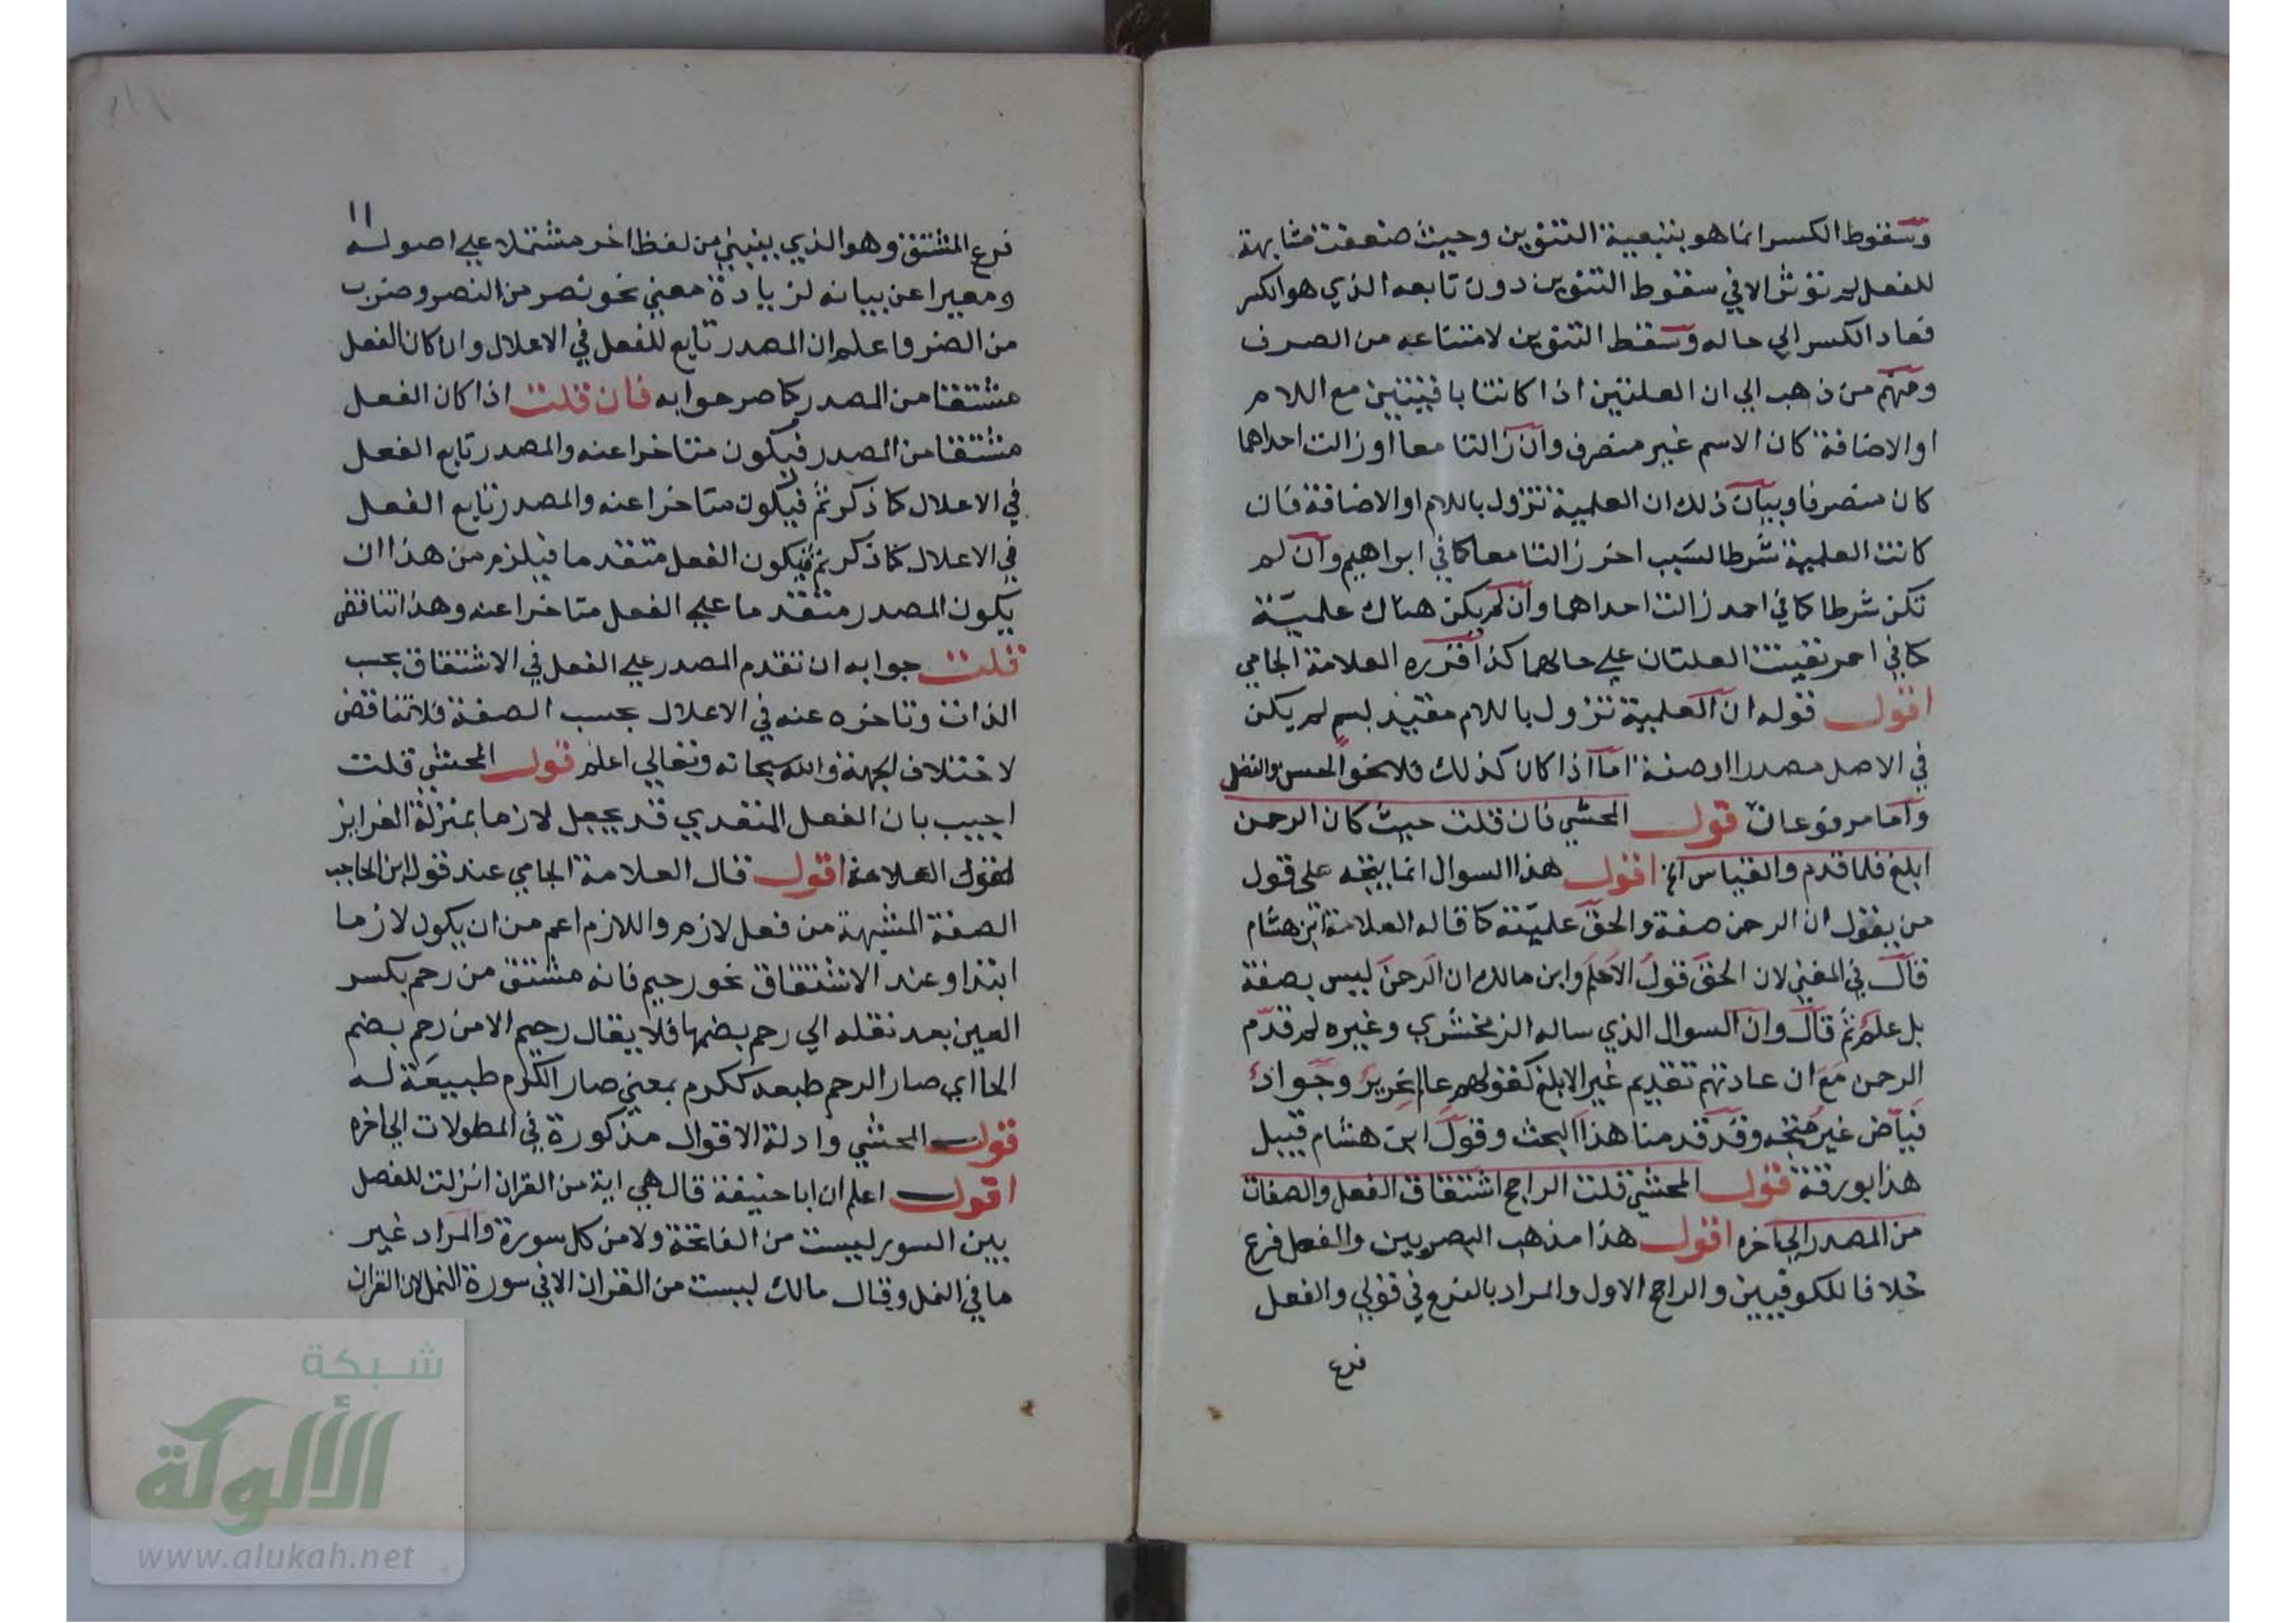 وسقوط الكسر انما هو بتبعية التنوين وحيث ضعفت مشابهة
للفعل لم تؤثر الا في سقوط التنوين دون تابعه الذي هو الكسر
فعاد الكسر الي حاله وسقط التنوين لامتناعه من الصرف
ومنهم من ذهب الي ان العلتين اذا كانتا باقيتين مع اللام
او الاضافة كان الاسم غير منصرف وان زالتا معا او زالت احداهما
كان منصرفا وبيان ذلك ان العلمية تزول باللام او الاضافة فان
كانت العلمية شرطا لسبب اخر زالتا معا كما في ابراهيم وان لم
تكن شرطا كما في احمد زالت احداهما وان لم يكن هناك علمية
كما في احمر بقيت العلتان علي حالهما كذا قرره العلامة الجامي
اقول قوله ان العلمية تزول باللام مقيد بسم لم يكن
في الاصل مصدرا او صفة اما اذا كان كذلك فلا نحو الحسن والفضل
واما مرفوعان قول المحشي فان قلت حيث كان الرحمن
ابلغ فلما قدم والقياس الخ اقول هذا السوال انما يتجه على قول
من يقول ان الرحمن صفة والحق علميته كما قاله العلامة ابن هشام
قال في المغني لان الحق قول الاعلم وابن مالك ان الرحمن ليس بصفة
بل علم ثم قال وان السوال الذي ساله الزمخشري وغيره لم قدم
الرحمن مع ان عادتهم تقديم غير الابلغ كقولهم عالم نحرير وجواد
فياض غير متجه وقد قدمنا هذا البحث وقول ابن هشام قبيل
هذا بورقة قول المحشي قلت الراجح اشتقاق الفعل والصفات
من المصدر الي اخره اقول هذا مذهب البصريين والفعل فرع
خلافا للكوفيين والراجح الاول والمراد بالفرع في قولي والفعل
فرع
١١
فرع المشتق وهو الذي يبنبني من لفظ اخر مشتملا علي اصوله
ومعبرا عن بيانه لزيادة معني نحو نصر من النصر وضرب
من الضر واعلم ان المصدر تابع للفعل في الاعلال وان كان الفعل
مشتقا من المصدر كما صرحوا به فان قلت اذا كان الفعل
مشتقا من المصدر فيكون متاخرا عنه والمصدر تابع الفعل
في الاعلال كما ذكر ثم فيكون متاخرا عنه والمصدر تابع الفعل
في الاعلال كما ذكر ثم فيكون الفعل متقدما فيلزم من هذا ان
يكون المصدر متقدما علي الفعل متاخرا عنه وهذا تناقض
قلت جوابه ان تقدم المصدر علي الفعل في الاشتقاق بحسب
الذات وتاخره عنه في الاعلال بحسب الصفة فلا تناقض
لاختلاف الجهة والله سبحانه وتعالي اعلم قول المحشي قلت
اجيب بان الفعل المتعدي قد يجعل لازما بمنزلة الغرايز
لقول العلامة اقول قال العلامة الجامي عند قول ابن الحاجب
الصفة المشبهة من فعل لازم واللازم اعم من ان يكون لازما
ابتدا وعند الاشتقاق نحو رحيم فانه مشتق من رحم بكسر
العين بعد نقله الي رحم بضمها فلا يقال رحيم الا من رحم بضم
الحا اي صار الرحم طبعه ككرم بمعني صار الكرم طبيعة له
قول المحشي وادلة الاقوال مذكورة في المطولات الي اخره
اقول اعلم ان ابا حنيفة قال هي اية من القران انزلت للفصل
بين السور ليست من الفاتحة ولا من كل سورة والمراد غير
ما في النمل وقال مالك ليست من القران الا في سورة النمل لان القران
شبكة
الألوكة
www.alukah.net